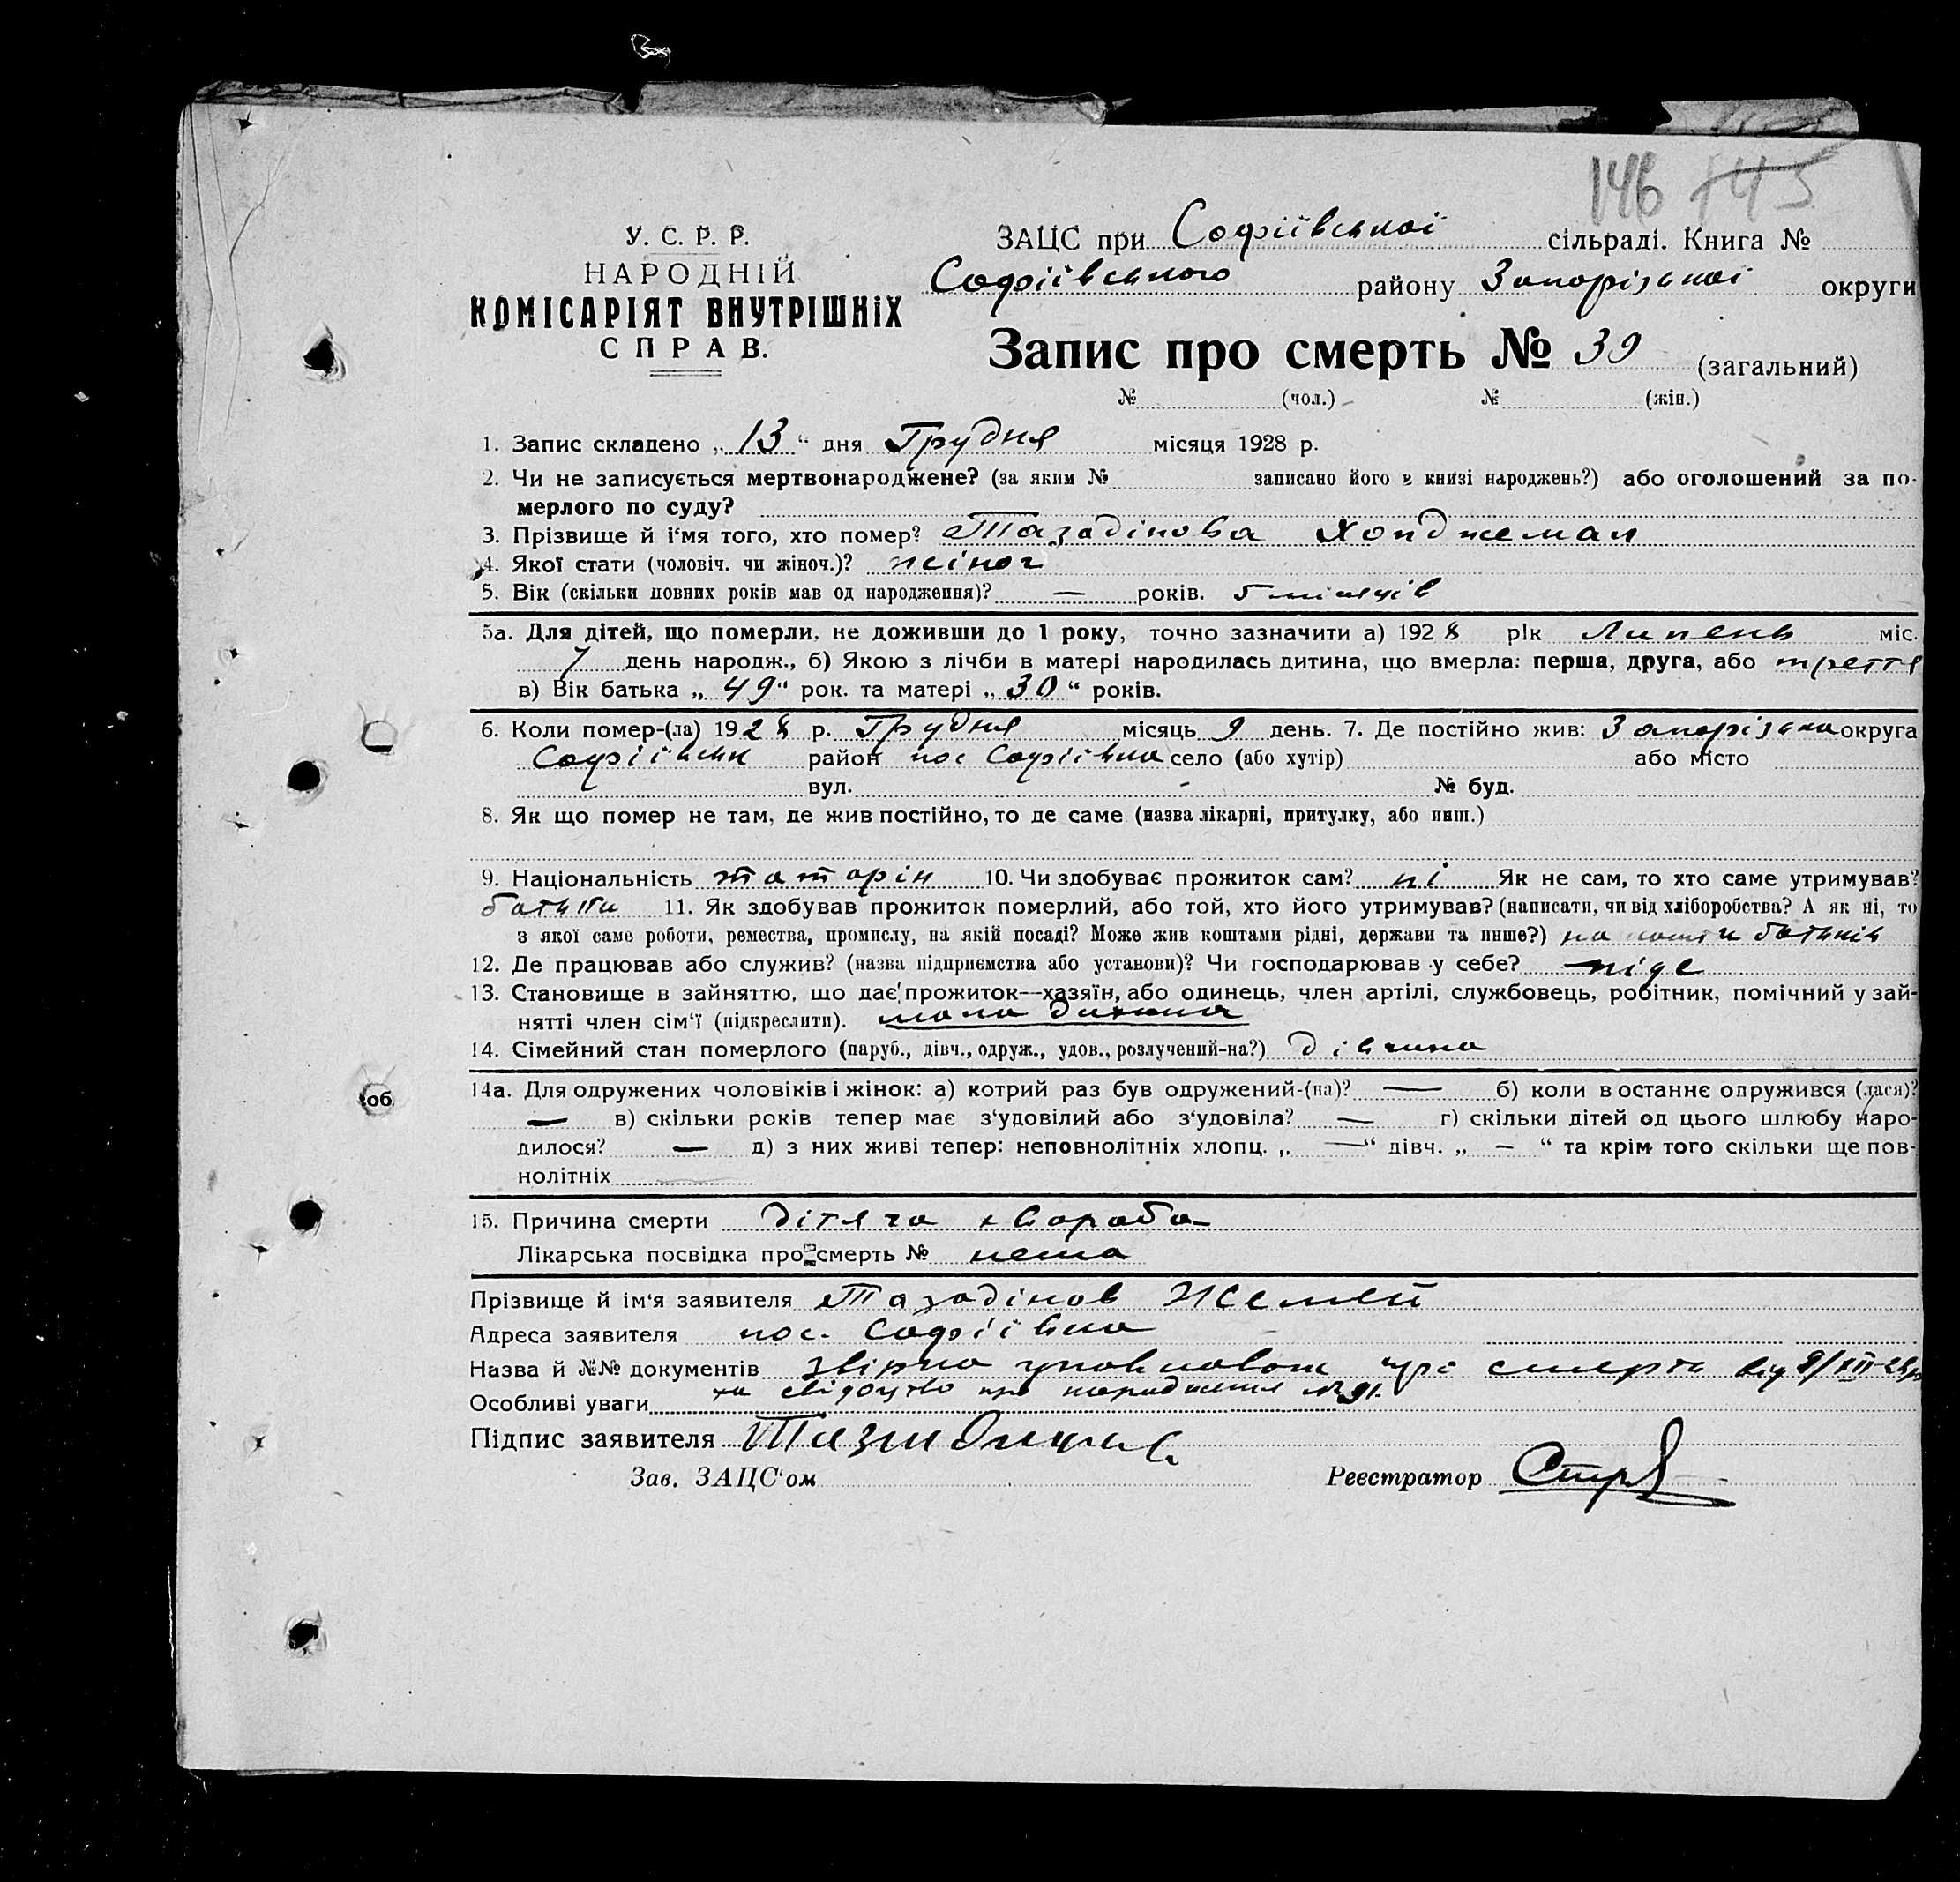 146 145
У. С. Р. Р.
НАРОДНІЙ
КОМІСАРІЯТ ВНУТРІШНІХ
СПРАВ.
ЗАЦС при Софіївської сільраді. Книга №
Софіївського району Запорізької округи
Запис про смерть № 39 (загальний)
№ (чол.) – № (жін.)
1. Запис складено „ 13 “ дня Грудня місяця 1928 р.
2. Чи не записується мертвонароджене? (за яким № записано його в книзі народжень?) або оголошений за по-
мерлого по суду?
3. Прізвище й і‘мя того, хто помер? Тазадінова Хопджемал
4. Якої стати (чоловіч. чи жіноч.)? жіноч
5. Вік (скільки повних років мав од народження)? — років. 5 місяців
5а. Для дітей, що померли, не доживши до 1 року, точно зазначити а) 1928 рік Липень міс.
7 день народж., б) Якою з лічби в матері народилась дитина, що вмерла: перша, друга, або третя
в) Вік батька „ 49 “ рок. та матері „ 30 “ років.
6. Коли помер-(ла) 1928 р. Грудня місяць 9 день. 7. Де постійно жив: Запорізька округа
Софіївськ район пос Софіївка село (або хутір) або місто
вул. - № буд.
8. Як що помер не там, де жив постійно, то де саме (назва лікарні, притулку, або инш.)
9. Національність татарін 10. Чи здобуває прожиток сам? ні Як не сам, то хто саме утримував?
батьки 11. Як здобував прожиток померлий, або той, хто його утримував? (написати, чи від хліборобства? А як ні, то
з якої саме роботи, ремества, промислу, на якій посаді? Може жив коштами рідні, держави та инше?) на кошти батьків
12. Де працював або служив? (назва підприємства або установи)? Чи господарював у себе? ніде
13. Становище в зайняттю, що дає прожиток—хазяїн, або одинець, член артілі, службовець, робітник, помічний у зай-
нятті член сім‘ї (підкреслити). мала дитина
14. Сімейний стан померлого (паруб., дівч., одруж., удов., розлучений-на?) дівчина
14а. Для одружених чоловіків і жінок: а) котрий раз був одружений-(на)? — б) коли в останнє одружився (лася)?
— в) скільки років тепер має з‘удовілий або з‘удовіла? — г) скільки дітей од цього шлюбу наро-
дилося? — д) з них живі тепер: неповнолітніх хлопц. „ — “ дівч. „ – “ та крім того скільки ще пов-
нолітніх
15. Причина смерти дітяча хвораба
Лікарська посвідка про смерть № нема
Прізвище й ім‘я заявителя Тазадінов Жемей
Адреса заявителя пос. Софіївка
Назва й №№ документів про смерть від 9/XII-28р
та свідоцтво про народження № 91.
Особливі уваги
Підпис заявителя
Зав. ЗАЦС‘ом Реєстратор
об.